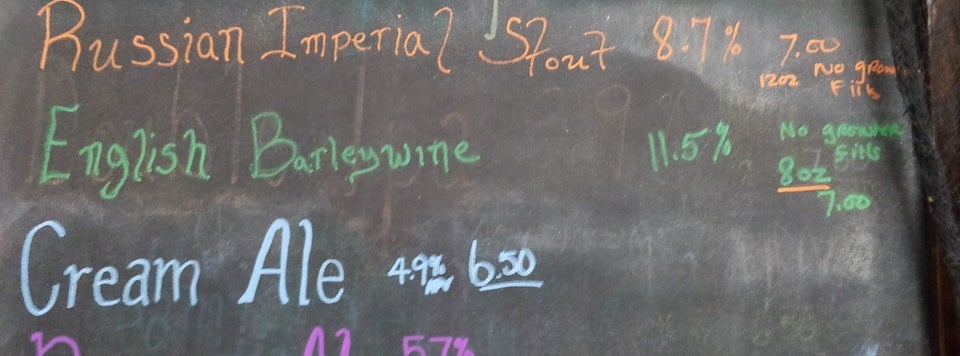 Russian Imperial Stout 8.7% 7.00
12oz No grow
Fills
English Barleywine 11.5% No growler
Fills
8oz
7.00
Cream Ale 4.9% ABV 6.50
57%